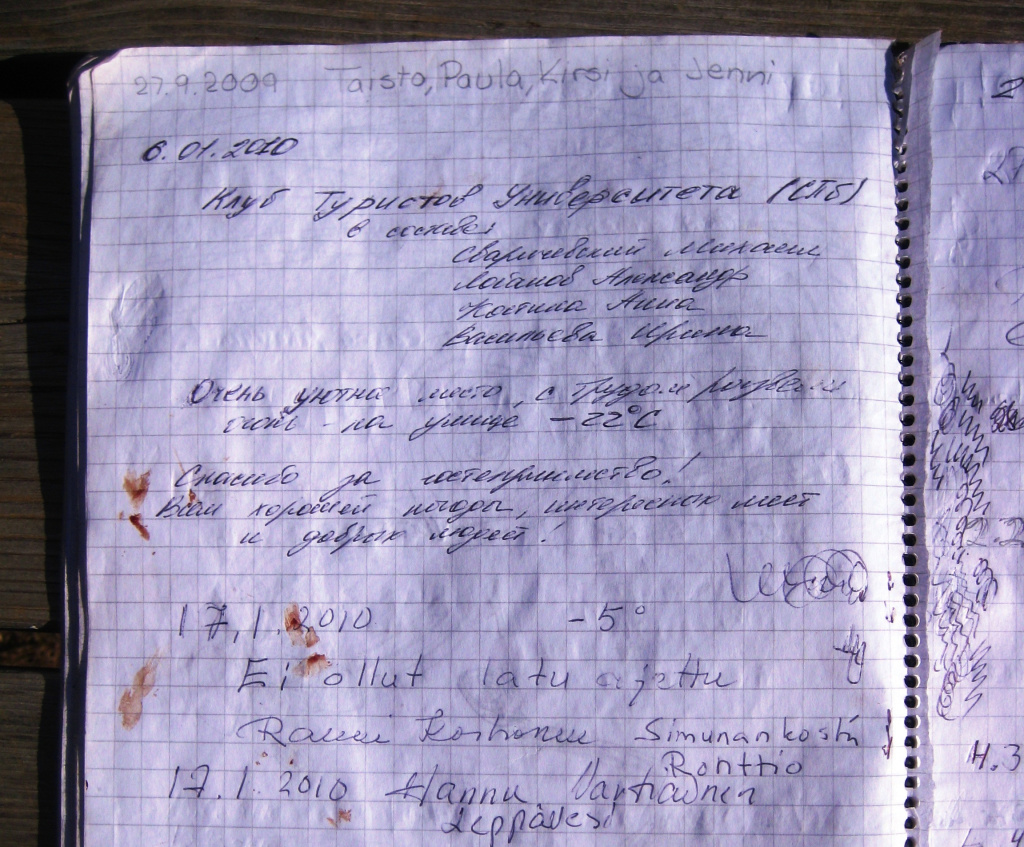 27.9.2009 Taisto, Paula, Kirsi ja Jenni
6.01.2010
Клуб Туристов Университета (СПб)
в составе:
Сваричевский Михаил
Лобанов Александр
Костина Анна
Васильева Ирина
Очень уютное место, с трудом развели
огонь - на улице -22°C
Спасибо за гостеприимство!
Всем хорошей погоды, интересных мест
и добрых людей!
17.1.2010 -5°
Ei ollut latu ajettu
Rauni Korhonen Simunankoski
Ronttio
17.1.2010 Hannu Vartiainen
Leppävesi